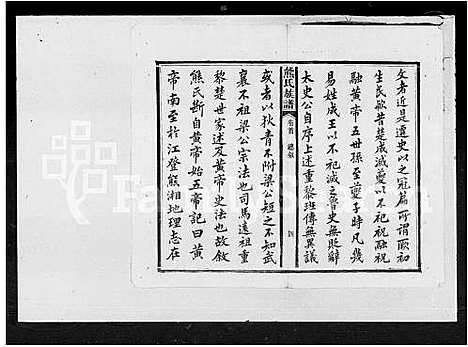 文者近是遷史以之冠篇所謂厥初
生民歟昔楚成滅夔以不祀祝融祝
融黃帝五世孫至夔子時凡幾
易姓成王以不祀滅之魯史無貶辭
太史公自序上述重黎班傳無異議
熊氏族譜 卷首 總叙 四
或者以狄青不附梁公短之不知武
襄不祖梁公宗法也司馬遠祖重
黎楚世家述及黃帝史法也故敘
熊氏斷自黃帝始五帝記曰黃
帝南至於江登熊湘地理志在